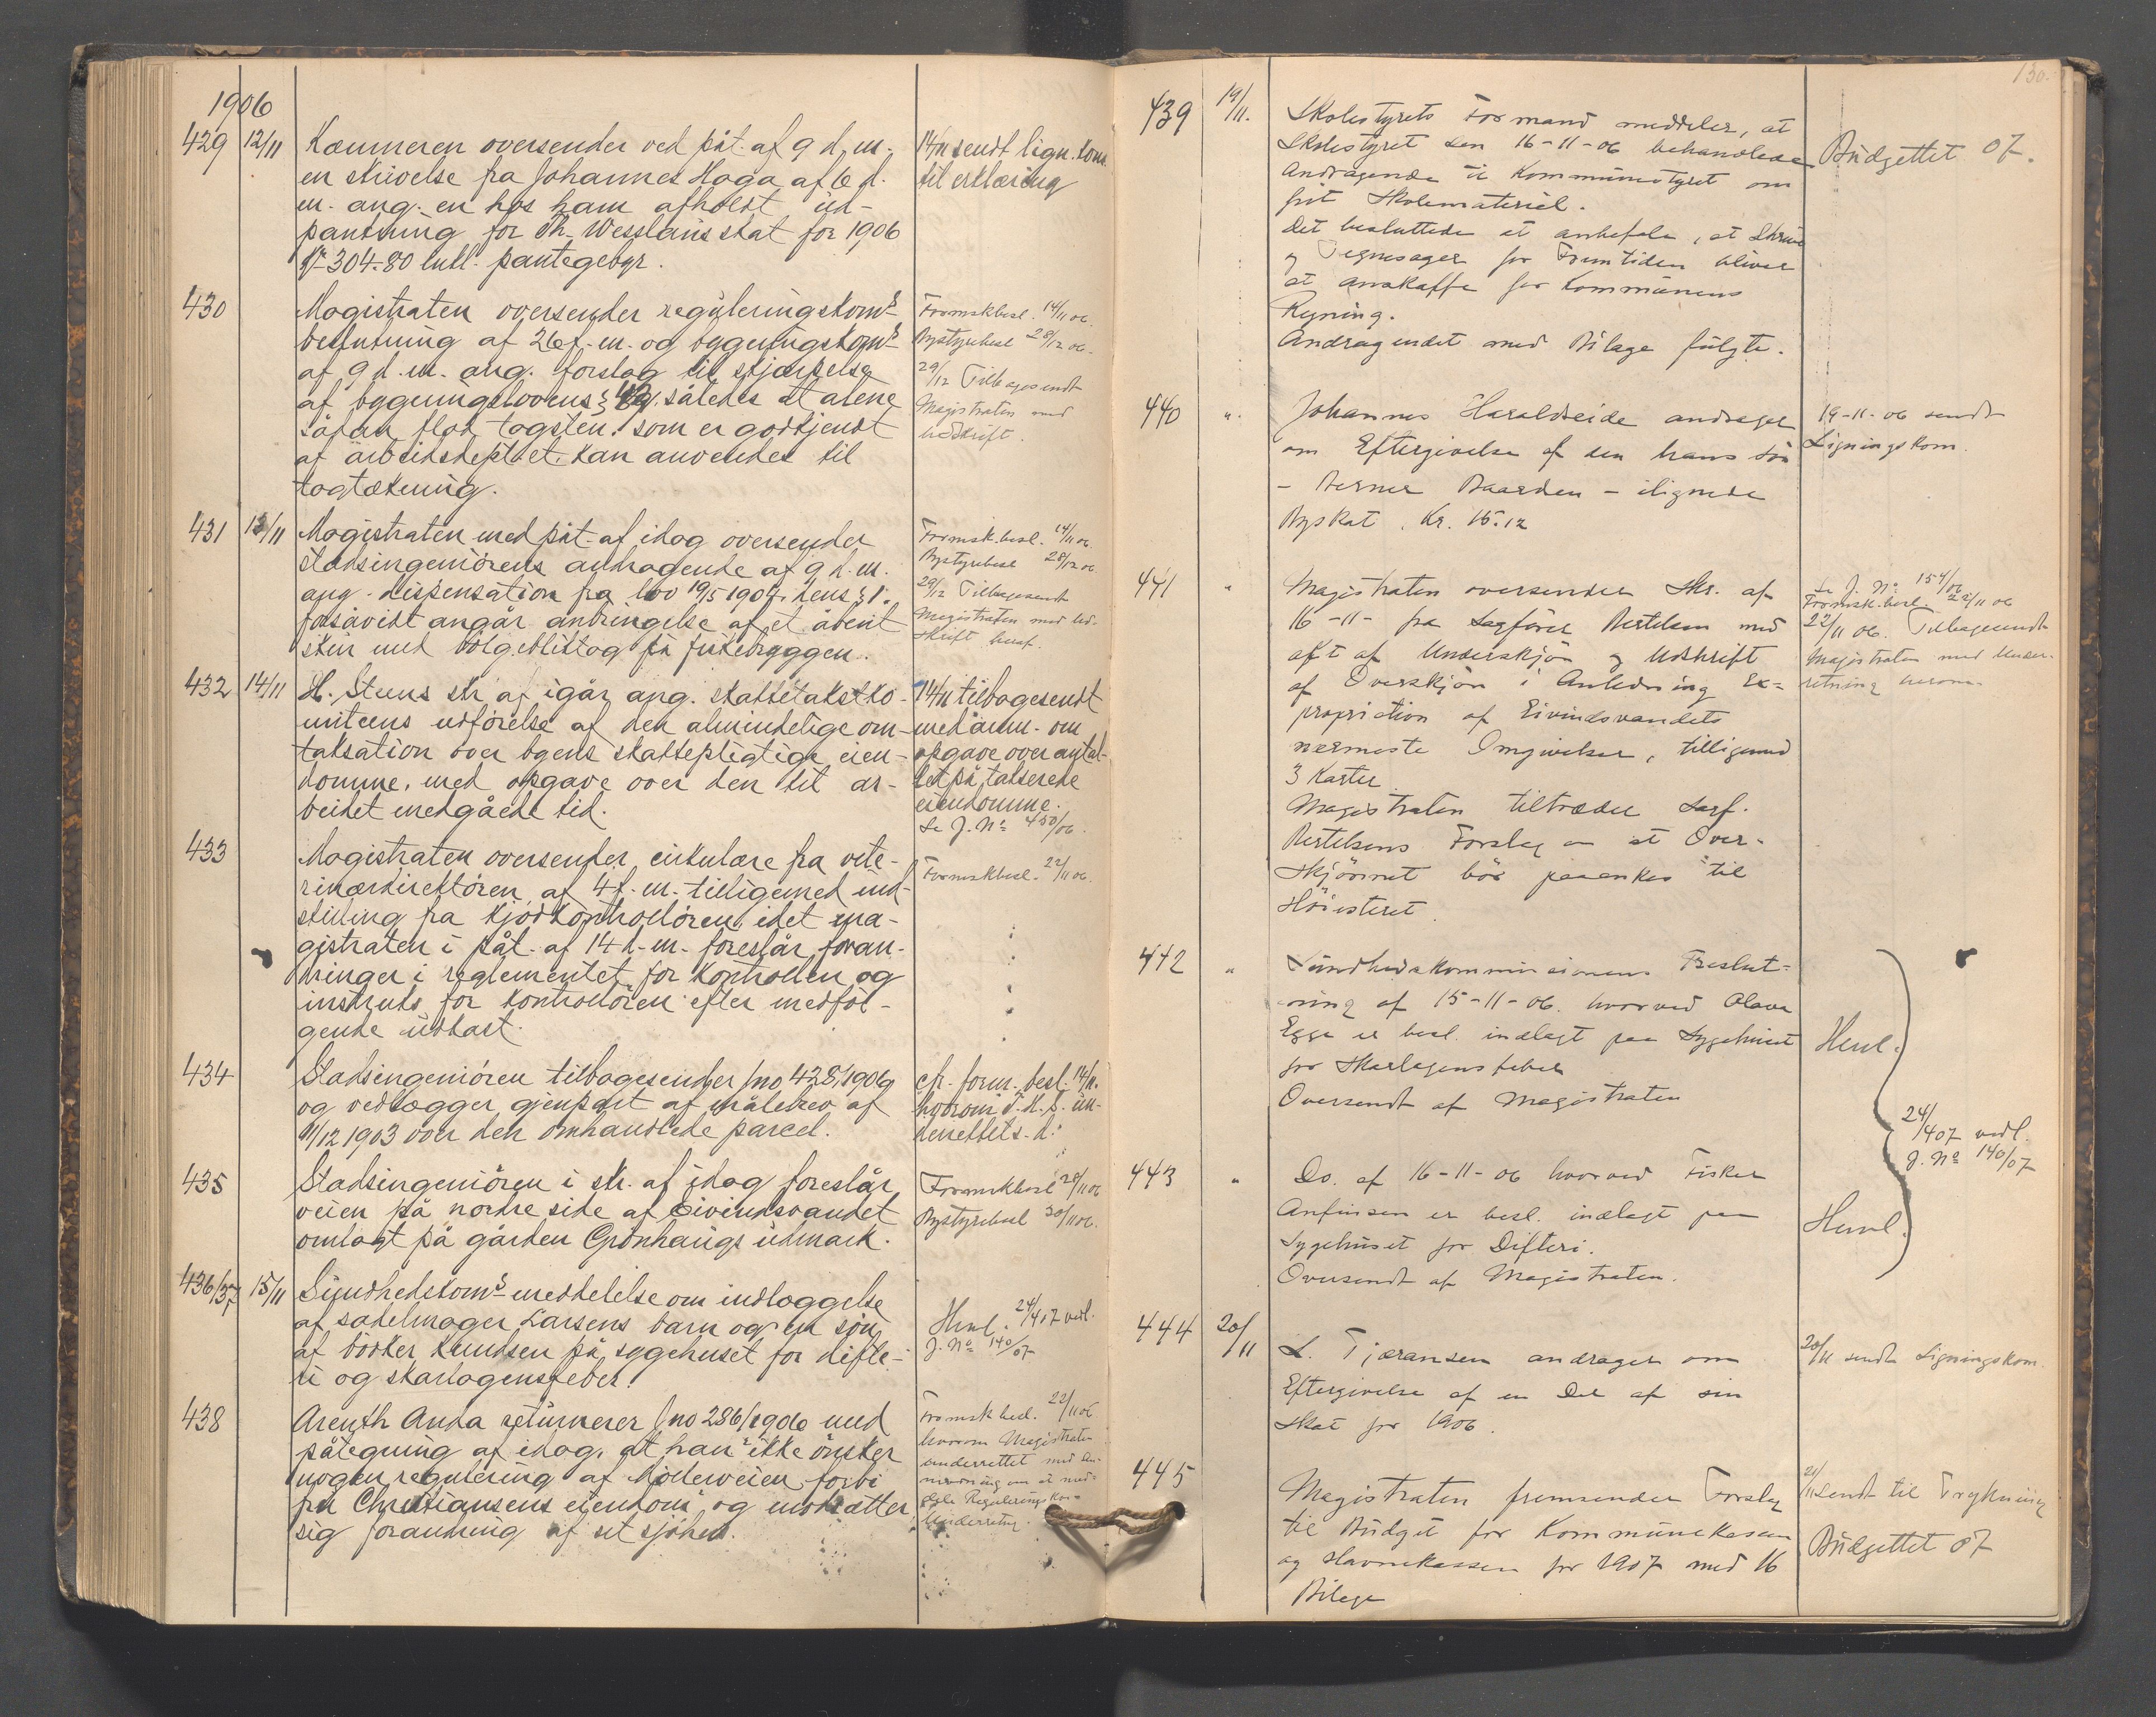 1906
429 12/11 Kæmneren oversender ved påt. af 9 d. m.
en skrivelse fra Johannes Haga af 6 d.
m. ang. en hos ham afholdt ud-
pantning for Th. Wesslaus skat for 1906
kr 304.80 inkl. pantegebyr.
14/11 sendt lign. kom
til erklæring
430 Magistraten oversender reguleringskoms
beslutning af 26 f. m. og bygningskoms
af 9 d. m. ang. forslag til skjærpelse
af bygningslovens § 42, således at alene
sådan flad tagsten, som er godkjendt
af arbeidsdeptet. kan anvendes til
tagtækning.
Formskbesl. 14/11 06.
Bystyrebesl 28/12 06.
29/12 Tilbagesendt
Magistraten med
Udskrift.
431 13/11 Magistraten med påt. af idag oversender
stadsingeniörens andragende af 9 d. m.
ang. dispensation fra lov 19/5 1904. dens § 1.
forsåvidt angår anbringelse af et åbent
skur med bölgebliktag på fiskebryggen.
Formsk.besl. 14/11 06.
Bystyrebesl 28/12 06
29/12 Tilbagesendt
Magistraten med Ud-
skrift heraf.
432 14/11 H. Steens skr. af igår ang. skattetakstko-
miteens udförelse af den almindelige om-
taksation over byens skattepligtige eien-
domme, med opgave over den til ar-
beidet medgåede tid.
14/11 tilbagesendt
med anm. om
opgave over antal-
let på takserede
eiendomme.
Se J. No 450/06.
433 Magistraten oversender cirkulære fra vete-
rinærdirektören af 4 f. m. tilligemed ind-
stilling fra kjödkontrollören, idet ma-
gistraten i påt. af 14 d. m. foreslår foran-
dringer i reglementet for kontrollen og
instruks for kontrollören efter medföl-
gende udkast.
Formskbesl. 22/11 06.
434 Stadsingeniören tilbagesender Jno 428/1906
og vedlægger gjenpart af målebrev af
11/12 1903 over den omhandlede parcel.
cfr. form. besl. 14/11.
hvorom un-
derrettets
435 Stadsingeniören i skr. af idag foreslår
veien på nordre side af Eivindsvandet
omlagt på gården Grönhaugs udmark.
Formskbesl 28/11 06
Bystyrebesl 30/11 06.
436/37 15/11 Sundhedskoms meddelelse om indlæggelse
af sadelmager Larsens barn og en sön
af bödker Knudsen på sygehuset for difte-
ri og skarlagensfeber.
Henl. 24/4 07 vedl.
J. No 140/07
438 Arenth Anda returnerer Jno 286/1906 med
påtegning af idag, at han ikke önsker
nogen regulering af Mölleveien forbi
fru Christiansens eiendom, og modsætter
sig forandring af sit sjöhus.
Formsk besl. 22/11 06
hvorom Magistraten
underrettet med An-
modning om at med-
dele Reguleringskom
Underretng.
130.
439 19/11. Skolestyrets Formand meddeler, at
Skolestyret den 16-11-06 behandlede
Andragende til Kommunestyret om
frit Skolemateriel.
Det besluttede at anbefale, at Skrive
og Tegnesager for Fremtiden bliver
at anskaffe for Kommunens
Regning.
Andragendet med Bilage fulgte.
Budgettet 07.
440 " Johannes Haraldseide andrager
om Eftergivelse af den hans Sön
- Berner Baarden - ilignede
Byskat. Kr. 15.12
19-11-06 sendt
Ligningskom.
441 " Magistraten oversender Skr. af
16-11- fra Sagförer Bertelsen med
aft af Underskjön og Udskrift
af Overskjön i Anledning Ex=
propriation af Eivindsvandets
nærmeste Omgivelser, tilligemed
3 Karter.
Magistraten tiltræder Sagf.
Bertelsens Forslag om at Over-
skjönnet bör paaankes til
Höiesteret.
Se J. No 154/06
Formsk.besl. 22/11 06
22/11 06. Tilbagesendt
Magistraten med Under-
retning herom.
442 " Sundhedskommissionens Beslut=
ning af 15-11-06. hvorved Olava
Egge er besl. indlagt paa Sygehuset
for Skarlagensfeber
Oversendt af Magistraten
Henl.
24/4 07 vedl.
J. No 140/07
443 " Do. af 16-11-06 hvorved Fisker
Anfinsen er besl. indlagt paa
Sygehuset for Difteri.
Oversendt af Magistraten.
Henl.
444 20/11 L. Tjøransen andrager om
Eftergivelse af en Del af sin
Skat for 1906.
20/11 sendt Ligningskom.
445 Magistraten fremsender Forslag
til Budget for Kommunekassen
og Havnekassen for 1907 med 16
Bilage
21/11 sendt til Trykning
Budgettet 07